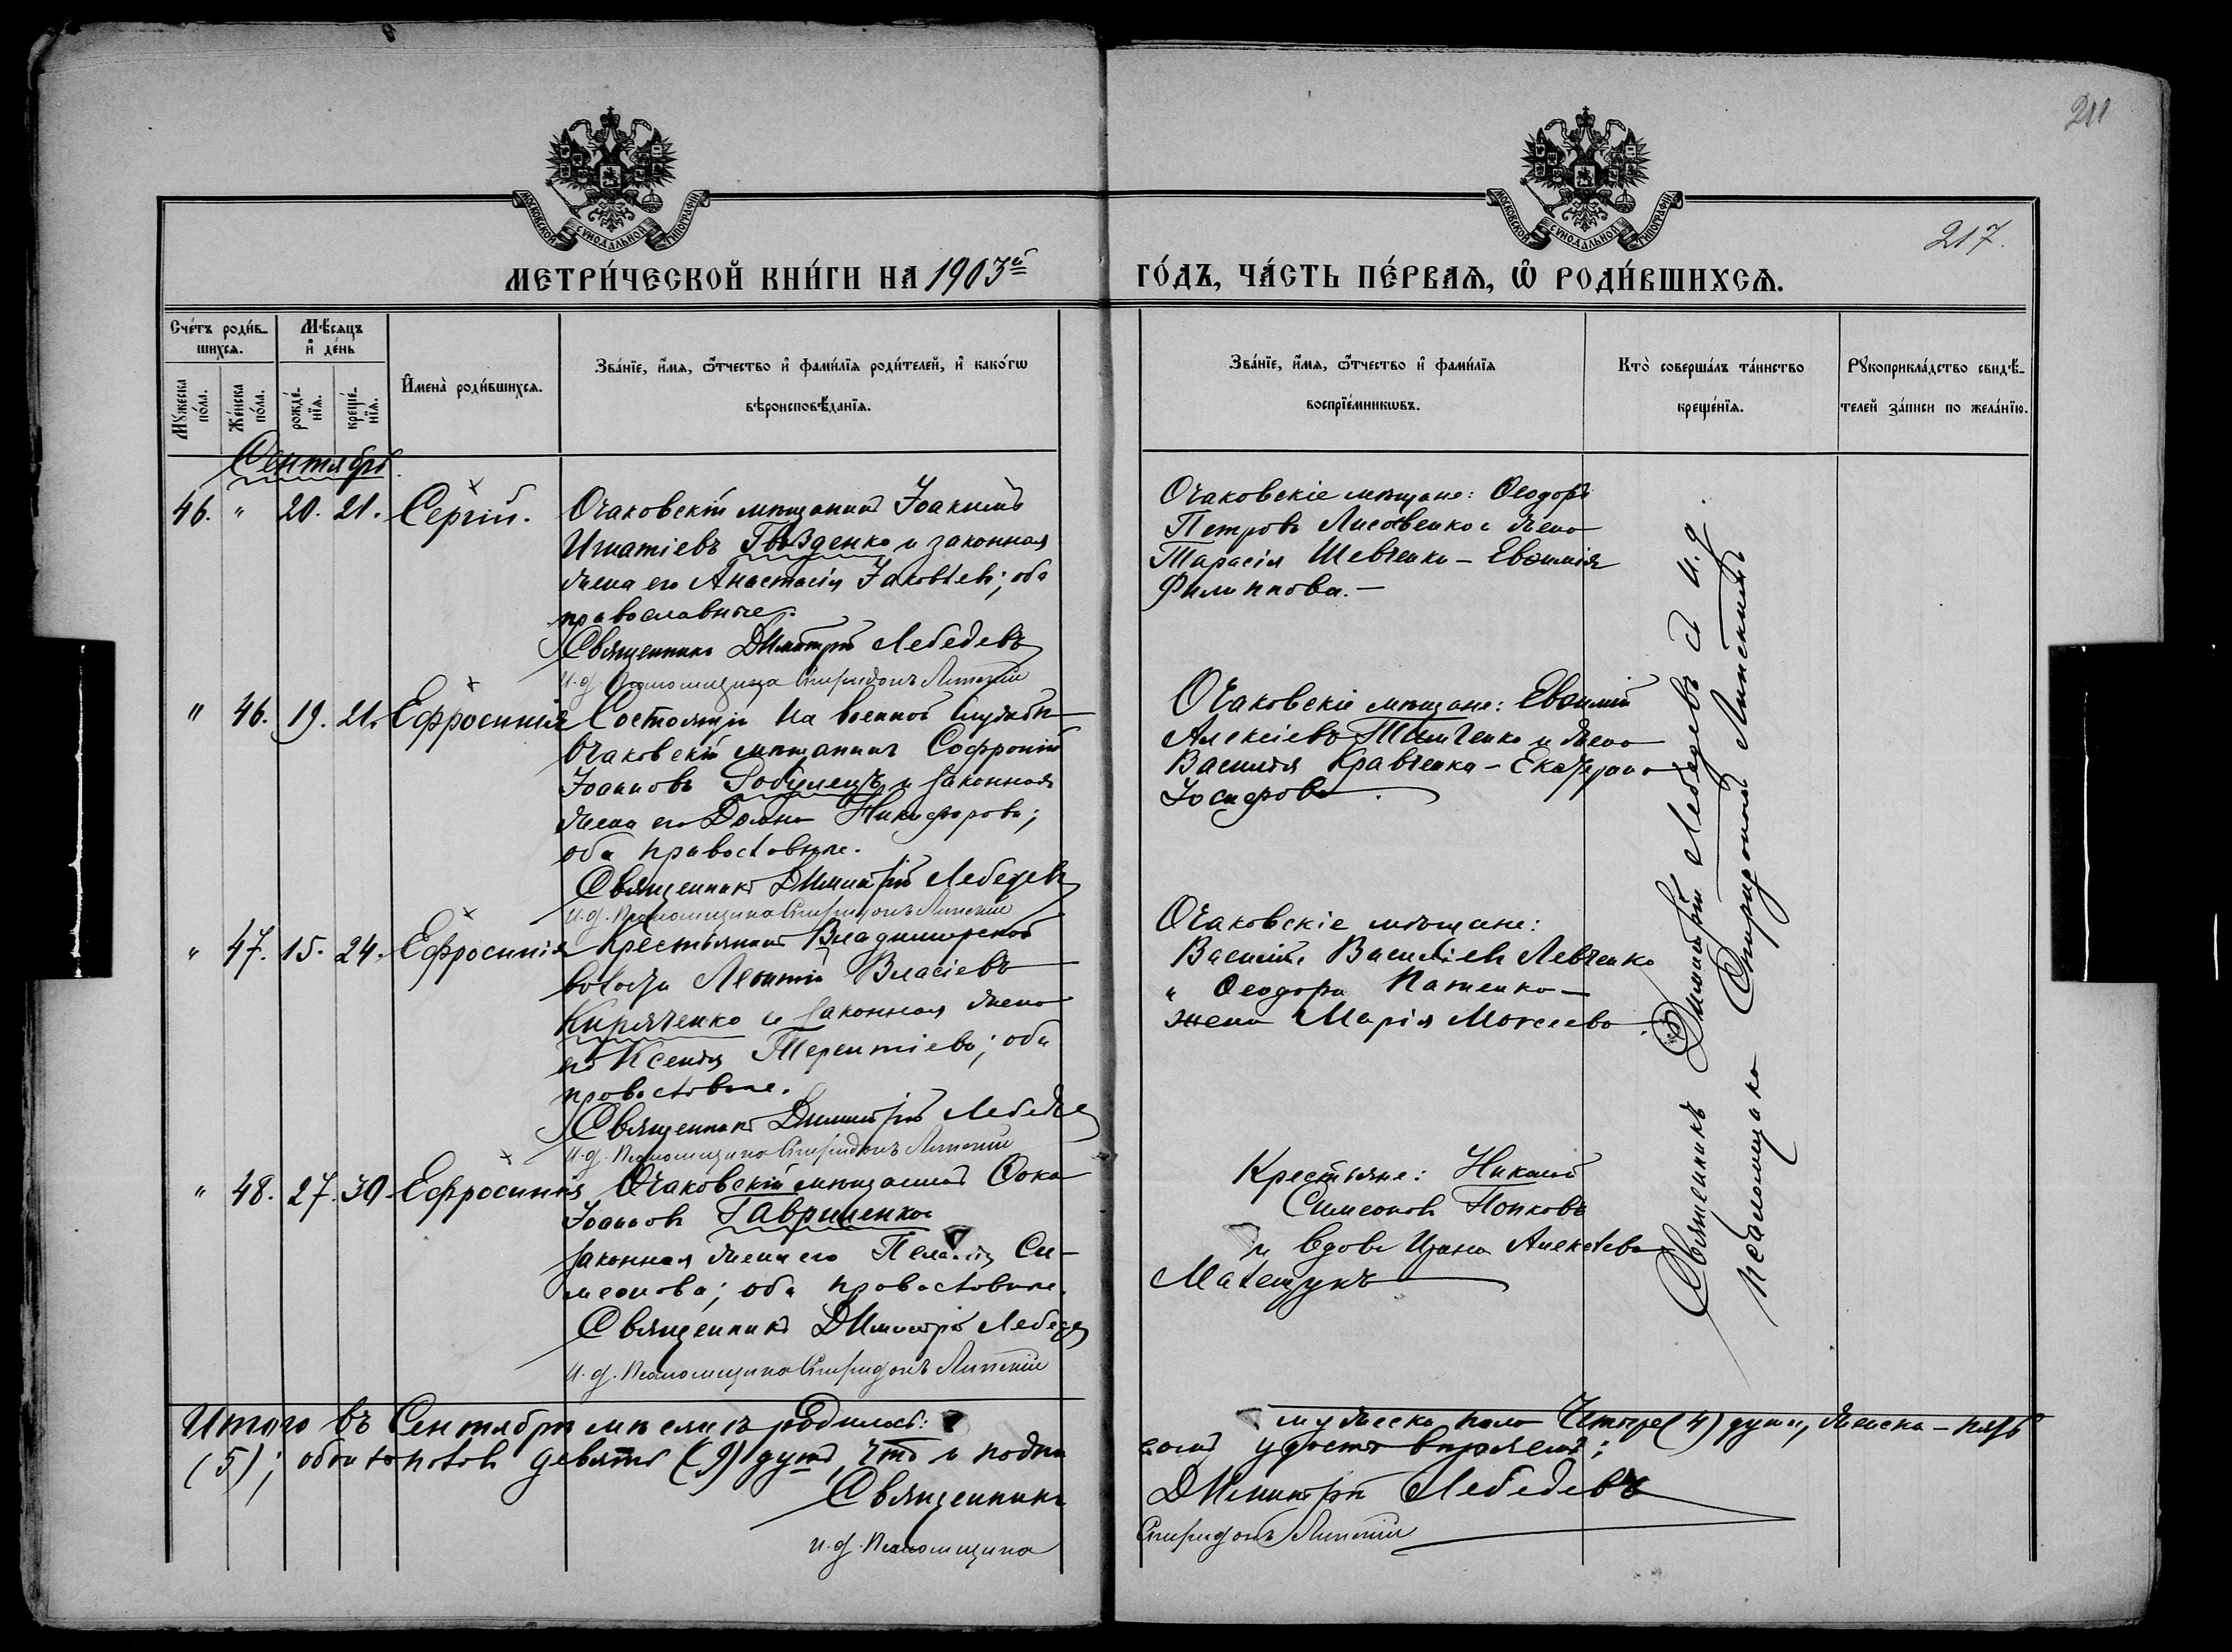 211
МОСКОВСКОЙ СѴНОДАЛЬНОЙ ТИПОГРАФІИ
МОСКОВСКОЙ СѴНОДАЛЬНОЙ ТИПОГРАФІИ
217.
МЕТРИ́ЧЕСКОЙ КНИ́ГИ НА 1903й
ГО́ДЪ, ЧА́СТЬ ПЕ́РВАѦ, Ѿ РОДИ́ВШИХСѦ.
Сче́тъ роди́в-
шихсѧ.
Мꙋ́жеска по́ла.
Же́нска по́ла.
Мѣ́сѧцъ и҆ де́нь
рожде́-нїѧ.
креще́-нїѧ.
И҆мена̀ роди́вшихсѧ.
Зва́нїе, и҆́мѧ, ѻ҆́тчество и҆ фами́лїѧ роди́телей, и҆ како́гѡ
вѣроисповѣ́данїѧ.
Зва́нїе, и҆́мѧ, ѻ҆́тчество и҆ фами́лїѧ
воспрїе́мникѡвъ.
Кто̀ соверша́лъ та́инство
креще́нїѧ.
Рꙋкоприкла́дство свидѣ́-
телей за́писи по жела́нїю.
Сентябрь
46. " 20. 21. Сергій.
Очаковскій мѣщанинъ Іоакимъ
Игнатіевъ Гвозденко и законная
жена его Анастасія Іаковлева; оба
православные.
Священникъ Димитрій Лебедевъ
И.д. Псаломщика Спиридонъ Липскій
Очаковскіе мѣщане: Ѳеодоръ
Петровъ Лисовенко и жена
Тарасія Шевченки - Евѳимія
Филиппова. -
" 46. 19. 21. Ефросинія
Состоящій на военной службѣ
Очаковскій мѣщанинъ Софроній
Іоанновъ и законная
жена его Домна Никифорова;
оба православные.
Священникъ Димитрій Лебедевъ
И.д. Псаломщика Спиридонъ Липскій
Очаковскіе мѣщане: Евѳимій
Алексіевъ и жена
Василія Кравченка - Екатерина
Іосифова.
" 47. 15. 24. Ефросинія
Крестьянинъ Владимірской
волости Леонтій Власіевъ
Кириченко и законная жена
его Ксенія Терентіева; оба
православные.
Священникъ Димитрій Лебедев
И.д. Псаломщика Спиридонъ Липскій
Очаковскіе мѣщане:
Василій Василіевъ Левченко
и Ѳеодора Патенко -
жена Марія Моисеева.
" 48. 27. 30. Ефросинія
Очаковскій мѣщанинъ Ѳока
Іоанновъ Гавриленко и
законная жена его Пелагія Си-
меонова; оба православные.
Священникъ Димитрій Лебедев
И.д. Псаломщика Спиридонъ Липскій
Крестьяне:
Симеоновъ Попковъ
и вдова Ирина Алексѣева
Священникъ Димитрій Лебедевъ съ и.д.
псаломщика Спиридономъ Липскимъ.
Итого въ Сентябрѣ мѣсяцѣ родилось: мужеска пола четыре (4) души, женска - пять
(5); обоихъ половъ девять (9) душъ, что и подпи
сомъ удостовѣряемъ:
Священникъ Димитрій Лебедевъ
и.д. Псаломщика Спиридонъ Липскій